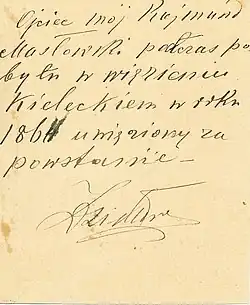 Ojciec mój Rajmund
Masłowski podczas po
bytu w więzieniu
Kieleckiem w roku
1864 uwięziony za
powstanie —